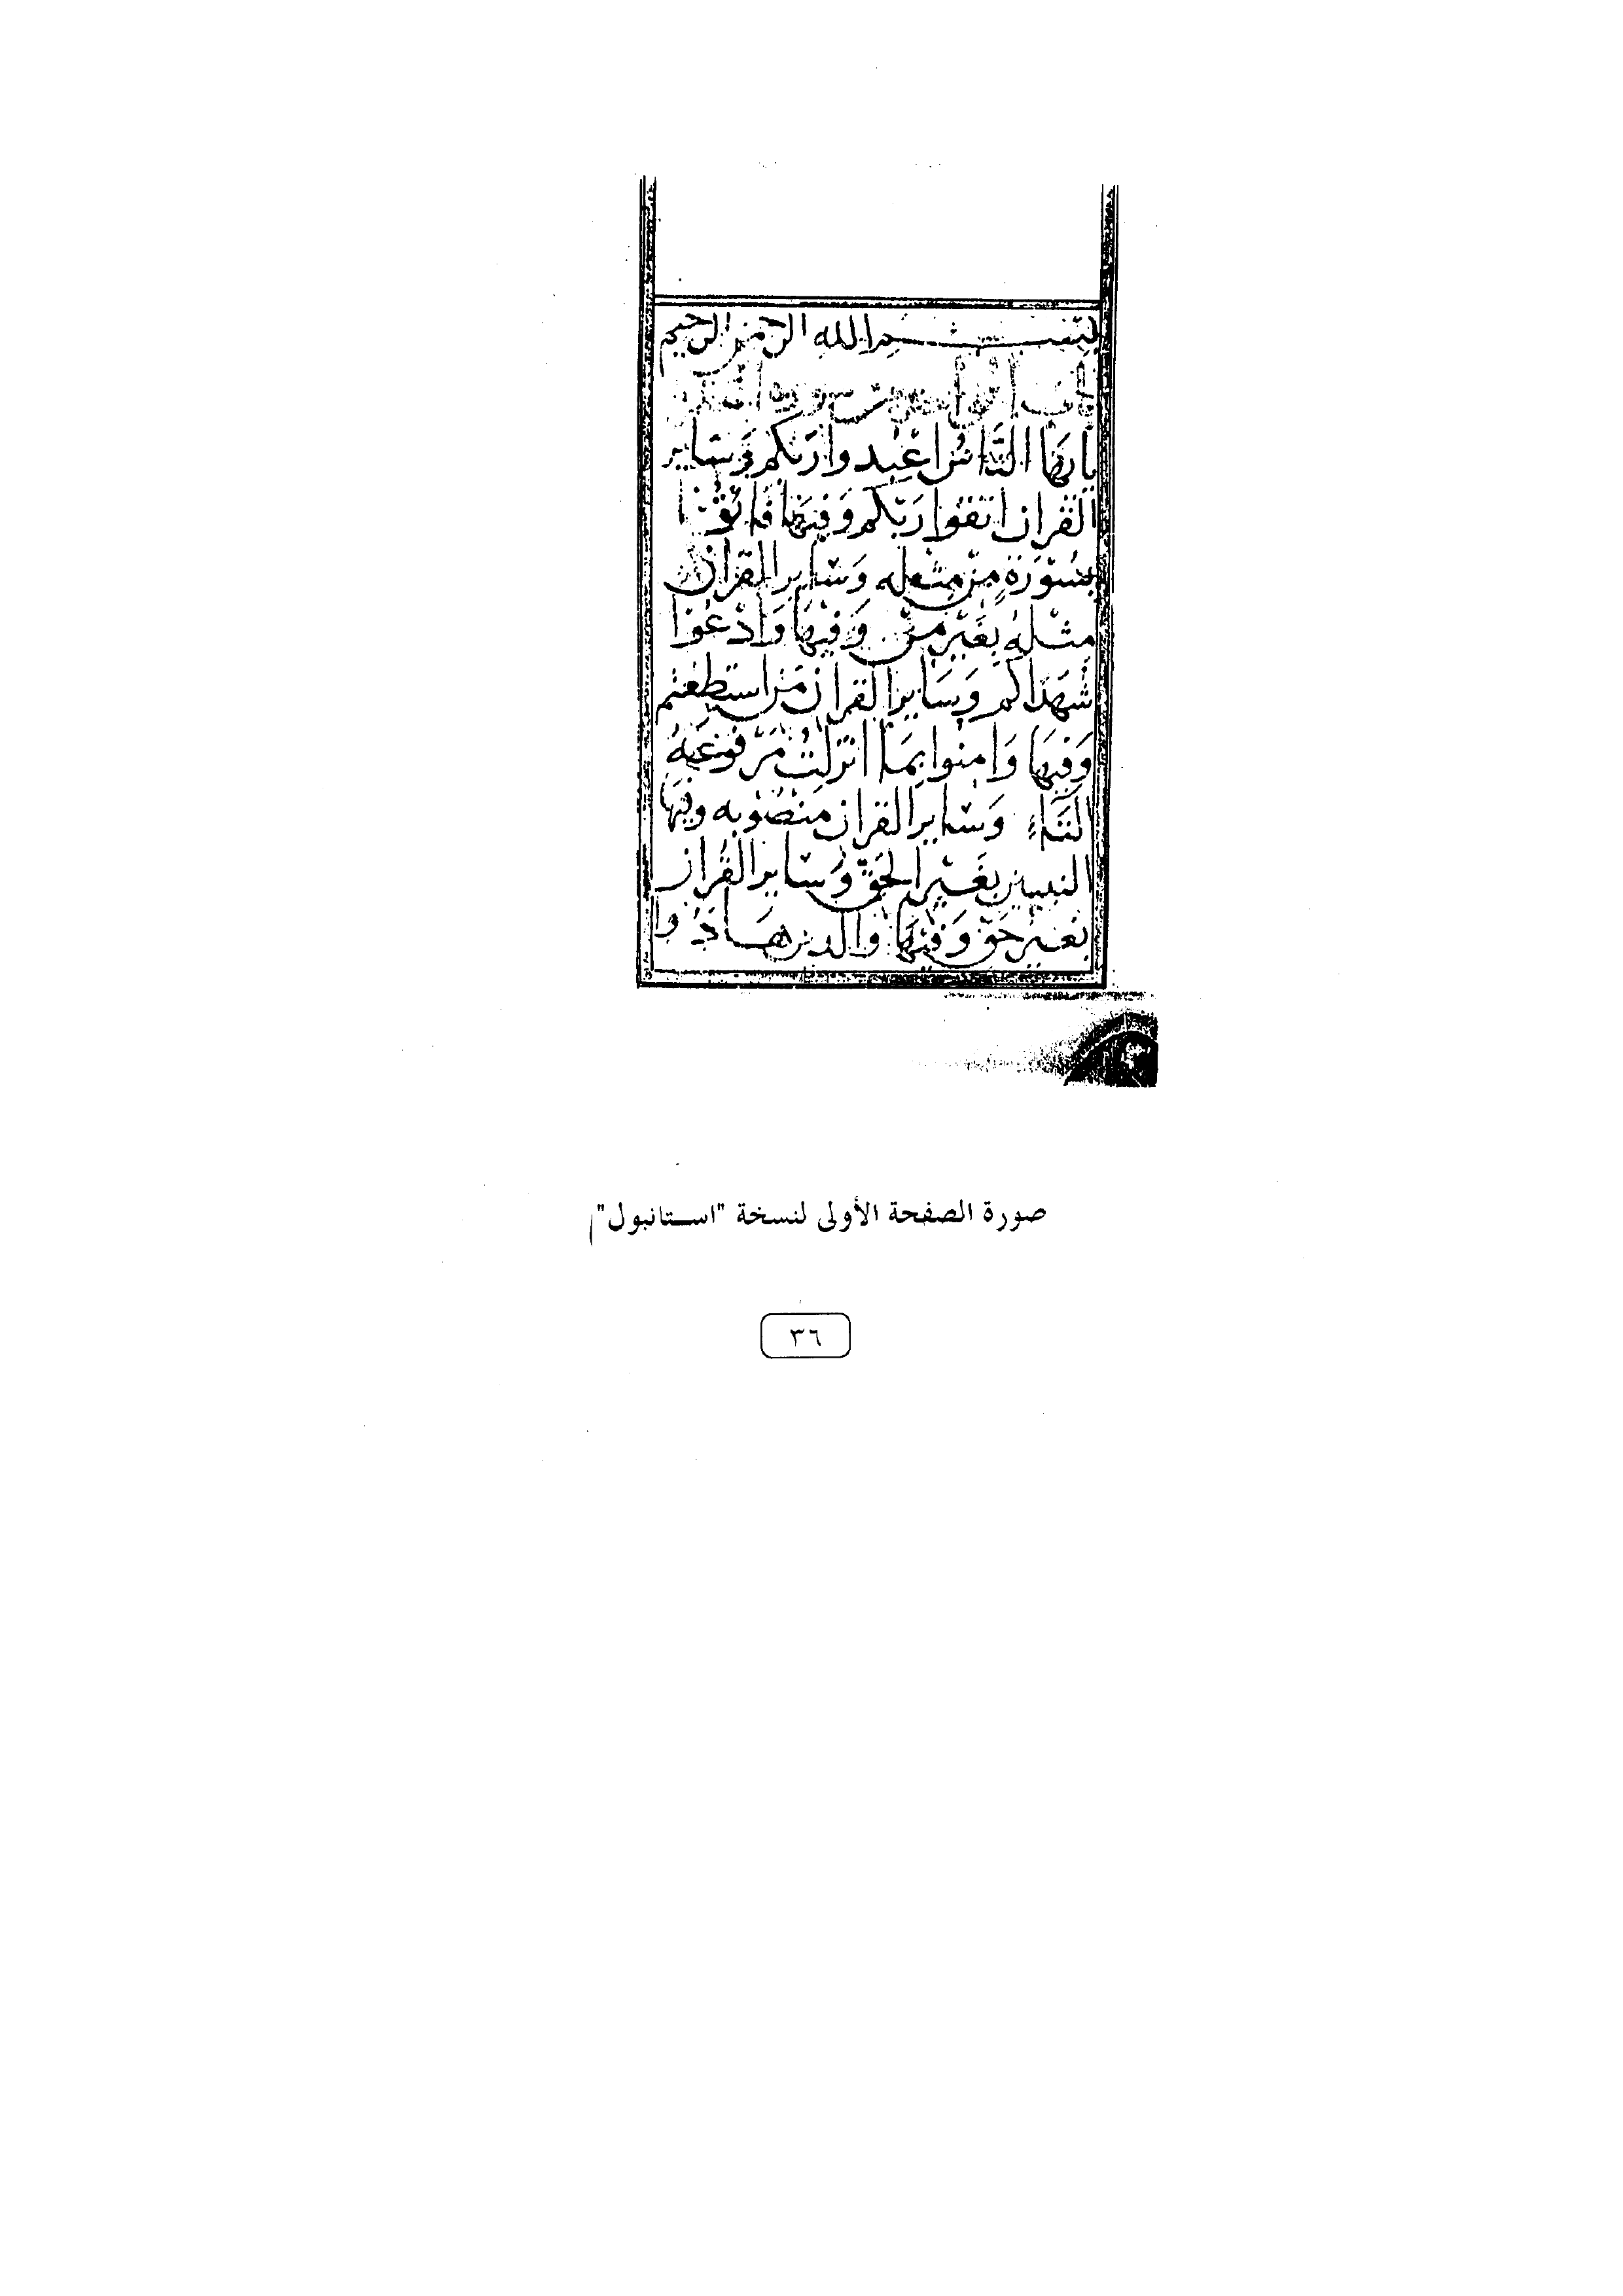 بسم الله الرحمن الرحيم
باب الواحد من سورة
يايها الناس اعبدوا ربكم وساير
القران اتقوا ربكم وفيها فاتوا
بسورة من مثله وساير القران
مثله بغير من وفيها وادعوا
شهداكم وساير القران من استطعتم
وفيها وامنوا بما انزلت مرفوعه
التاء وساير القران منصوبه وفيها
النبيين بغير الحق وساير القران
بغير حق وفيها والذين هادوا
صورة الصفحة الأولى لنسخة "استانبول"
٣٦